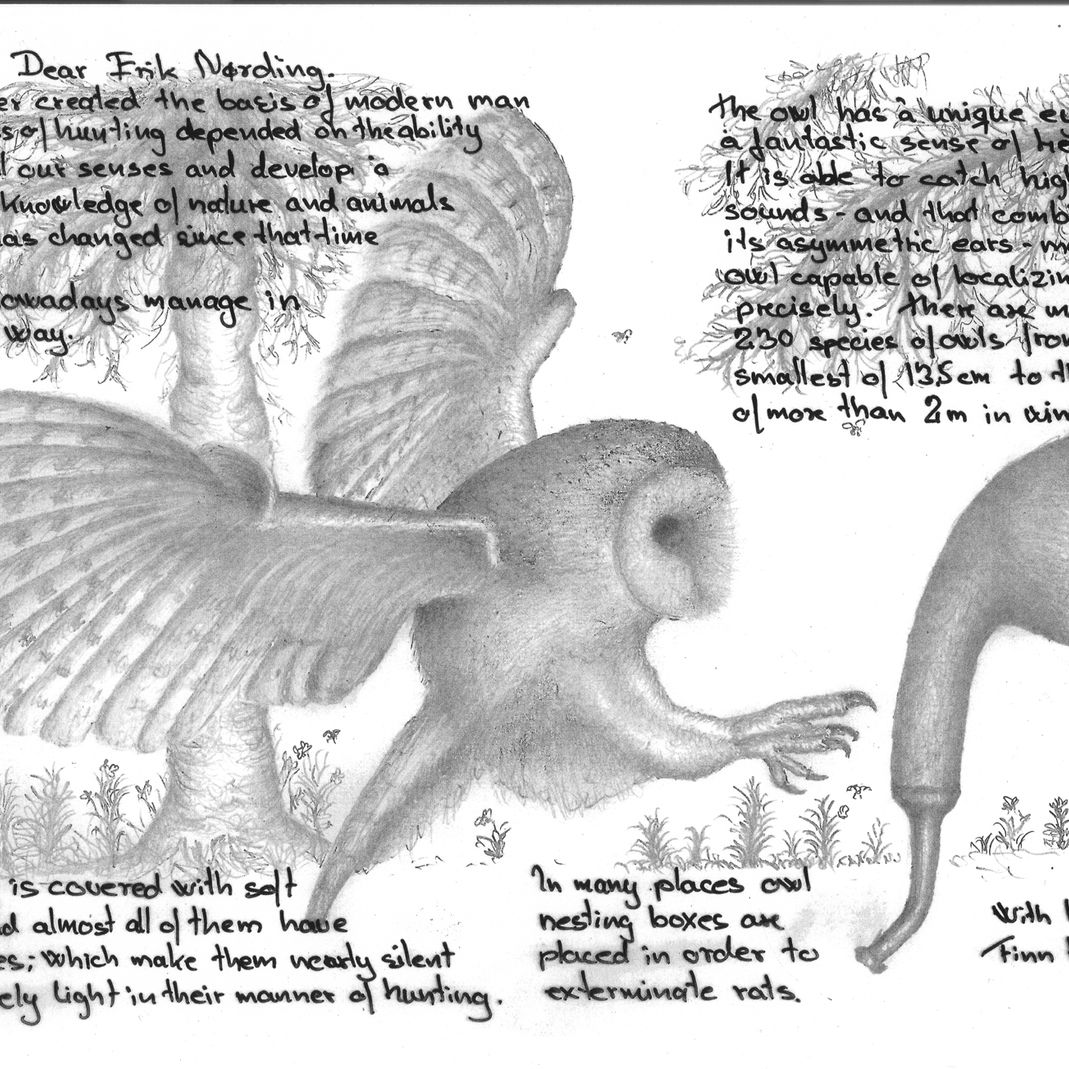 Dear Erik Nørding.
er created the basis of modern man
s of hunting depended on the ability
l our senses and develop a
knowledge of nature and animals
as changed since that time
owadays manage in
way.
The owl has a unique eu
a fantastic sense of he
It is able to catch hig
sounds - and that comb
its asymmetric ears - m
owl capable of localizin
precisely. There are m
230 species of owls from
smallest of 13,5 cm to th
of more than 2m in win
is covered with soft
nd almost all of them have
es; which make them nearly silent
ely light in their manner of hunting.
In many places owl
nesting boxes are
placed in order to
exterminate rats.
With
Finn